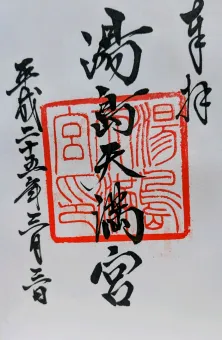 奉拝
湯島天満宮
平成二十五年 月 日
湯島
天満
宮印